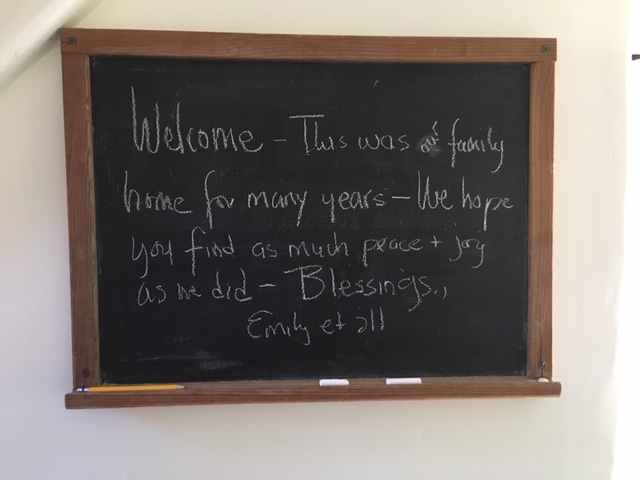 Welcome - This was our family
home for many years - We hope
you find as much peace + joy
as we did - Blessings.,
Emily et all